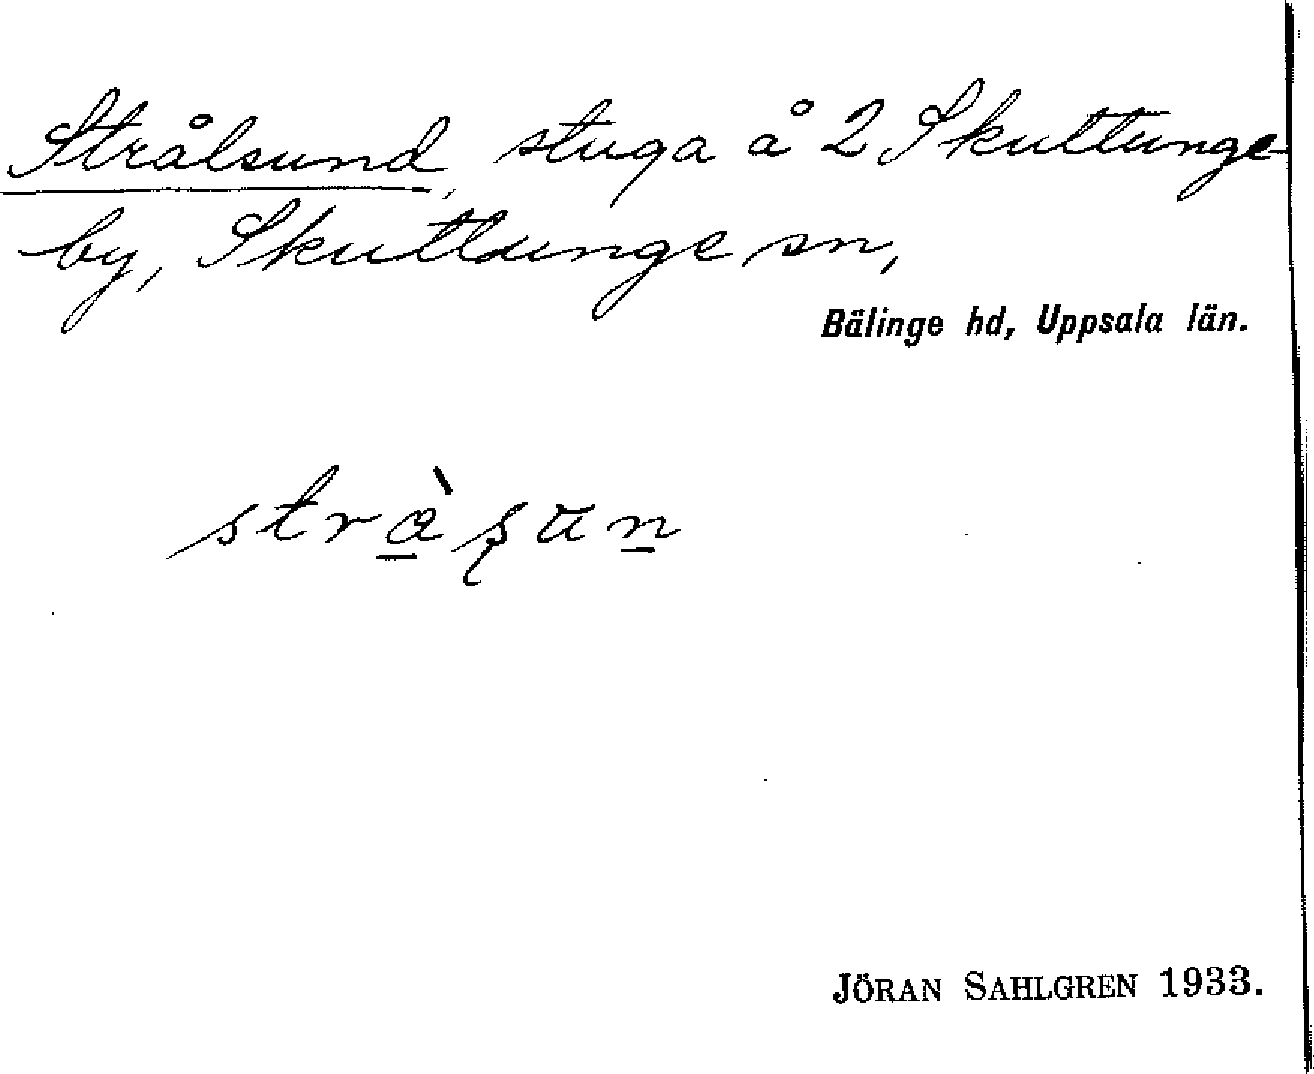 Strålsund, stuga å 2 Skuttunge
by, Skuttunge sn,
Bälinge hd, Uppsala län.
strà̱ʂun̲
JÖRAN SAHLGREN 1933.